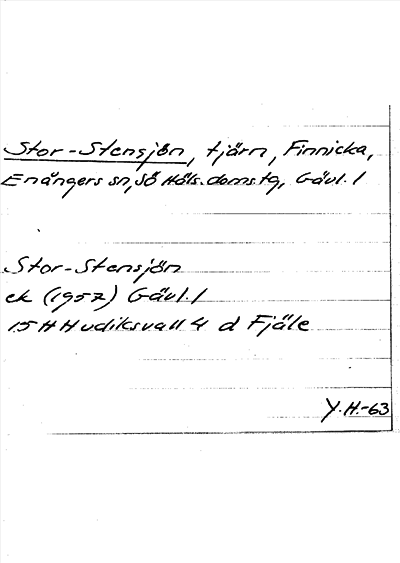 Stor-Stensjön, tjärn, Finnicka,
Enångers sn, Sö Häls. doms.tg, Gävl. l
Stor-Stensjön
ek (1957) Gävl. l
15 H Hudiksvall 4 d Fjäle
Y.H.-63